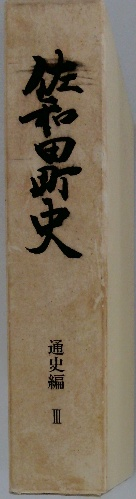 佐和田町史
通史編 Ⅲ